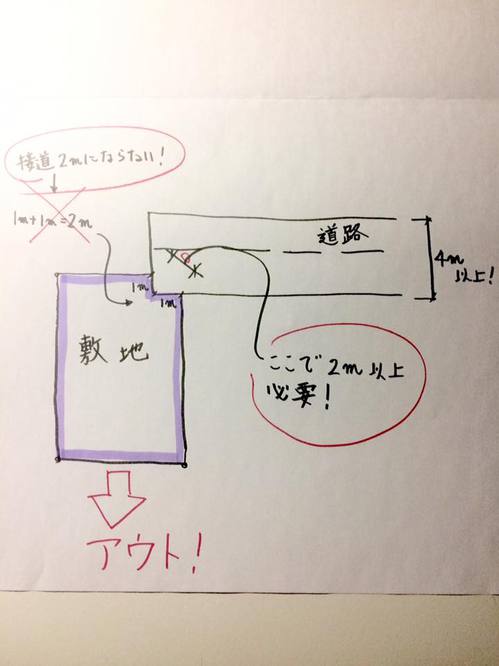 接道2mにならない!
1m+1m=2m
道路
4m
以上!
1m
1m
敷地
ここで2m以上
必要!
アウト!